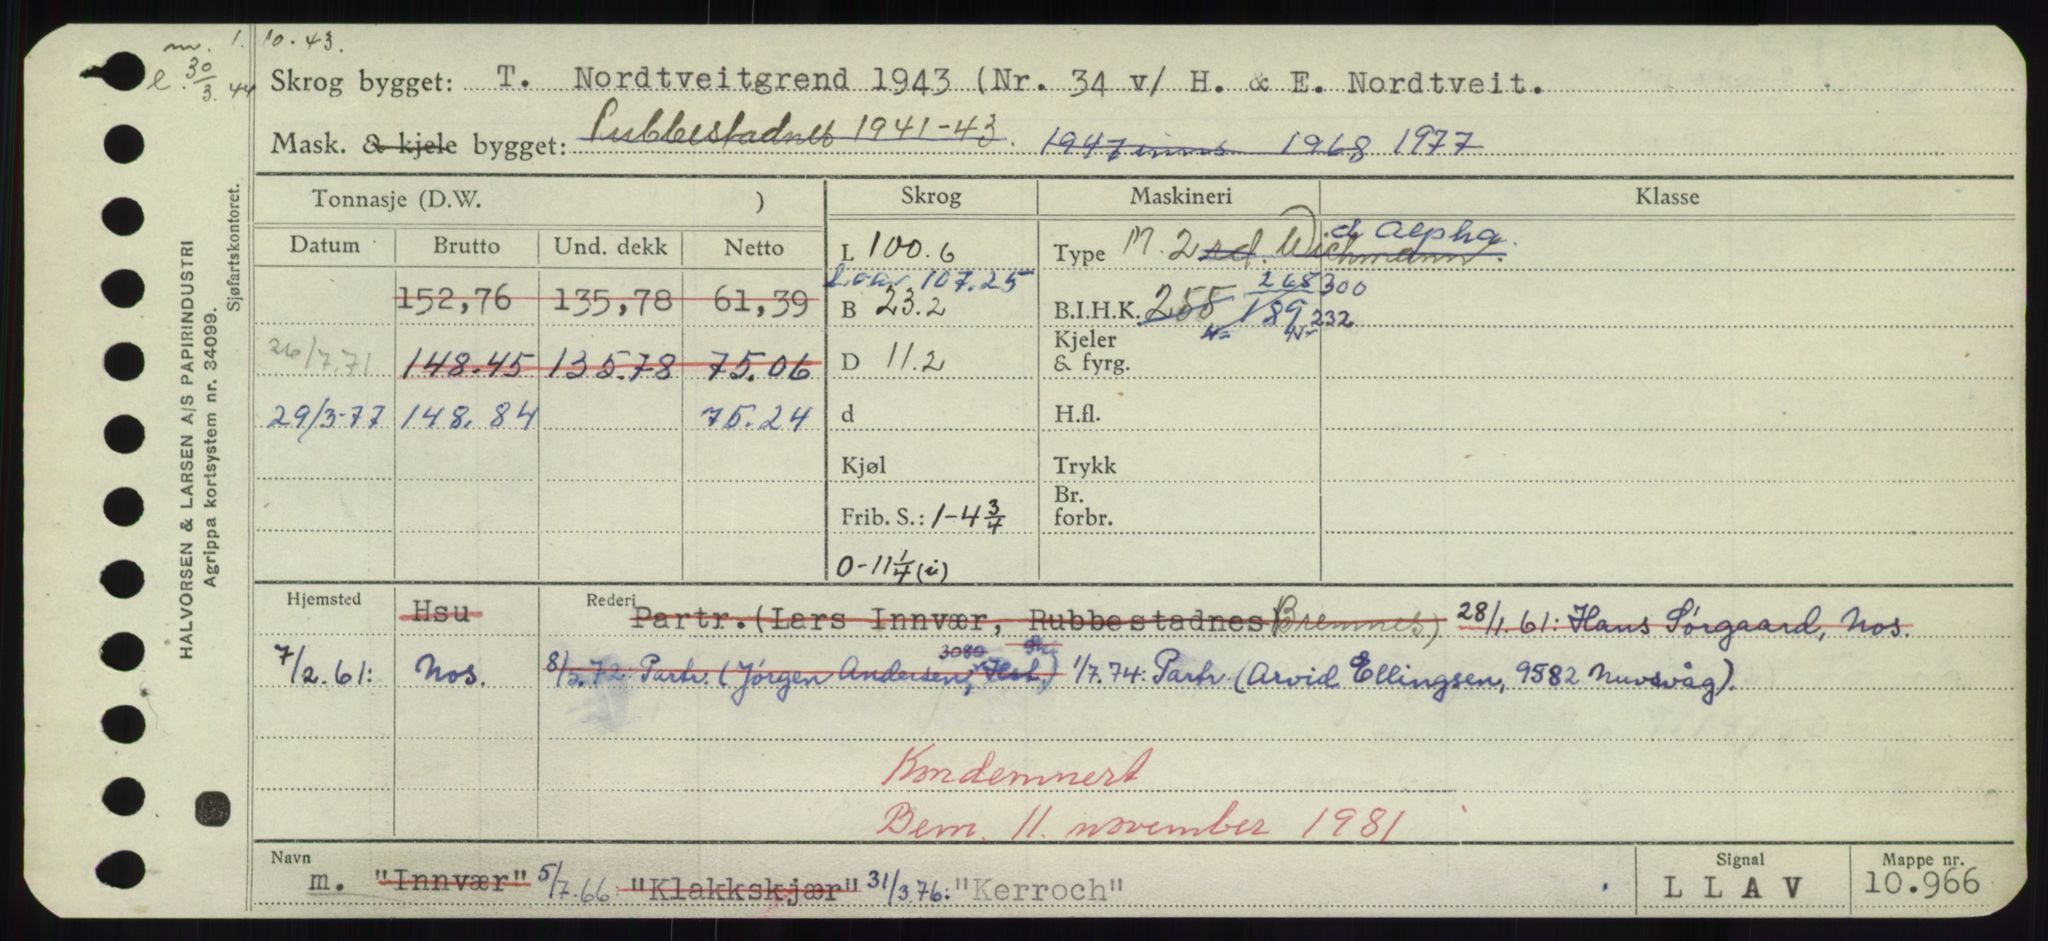 m. 1. 10.43.
l. 30/3.44
Skrog bygget: T. Nordtveitgrend 1943 (Nr. 34 v/ H. & E. Nordtveit.
Mask. & kjele bygget: Rubbestadnes 1941-43. 1947 1968 1977
Tonnasje (D.W. ) Skrog Maskineri Klasse
Datum Brutto Und. dekk Netto L 100.6 Type M. 2 Wichmann. Alpha.
L.o.a. 107.25
152,76 135,78 61,39 B 23.2 B.I.H.K. 255 189 268 300 232
26/7.71 148.45 135.78 75.06 D 11.2 Kjeler & fyrg.
29/3-77 148.84 75.24 d H.fl.
Kjøl Trykk
Frib. S.: 1-4 3/4 Br. forbr.
0-11 1/4 (i)
Hjemsted Hsu Rederi Partr. (Lars Innvær, Rubbestadnes) Bremnes) 28/1.61: Hans Sørgaard, Nos.
7/2.61: Nos. 8/5.72: Partr. (Jørgen Andersen, 3080 Hlst.) 1/7.74: Partr. (Arvid Ellingsen, 9582 Nuvsvåg).
Kondemnert
Bem. 11. november 1981
Navn m. "Innvær" 5/7.66: "Klakkskjær" 31/3.76: "Kerroch"
Signal LLAV
Mappe nr. 10.966
HALVORSEN & LARSEN A/S PAPIRINDUSTRI
Agrippa kortsystem nr. 34099.
Sjøfartskontoret.